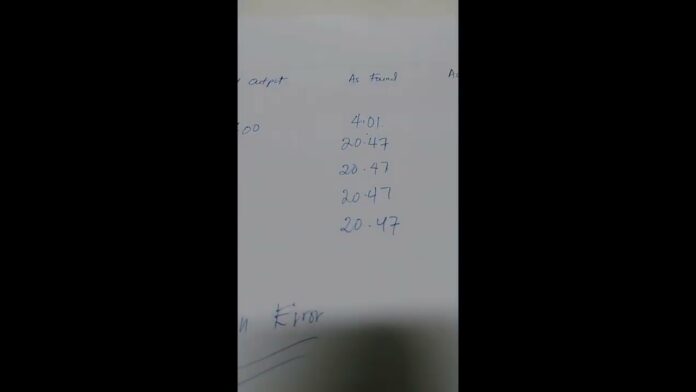 output As Found
00 4.01.
20.47
20.47
20.47
20.47
Error